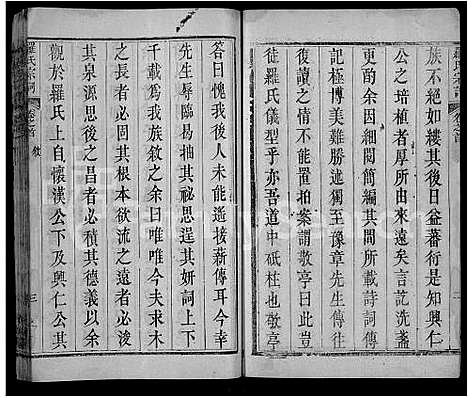 族不絕如縷其後日益蕃衍是興仁
公之培植者厚所由來遠矣言訖洗盞
復酌因細閱簡編其間所載詩詞傳
記極博美難勝述獨至豫章先生傳往
復讀之情不能置拍案謂敬亭曰豈
徒羅氏儀型乎亦吾道中砥柱也敬亭
答曰愧我後人未能遥接薪傳耳今幸
先生辱臨易抽其祕思逞其妍詞上下
千載爲我族敘之余曰唯唯今夫求木
之長者必固其根本欲流之遠者必浚
其泉源思後之昌者必積其德義以余
觀於羅氏上自懷漢公下及興仁公其
羅氏宗祠
卷之首
敘
三